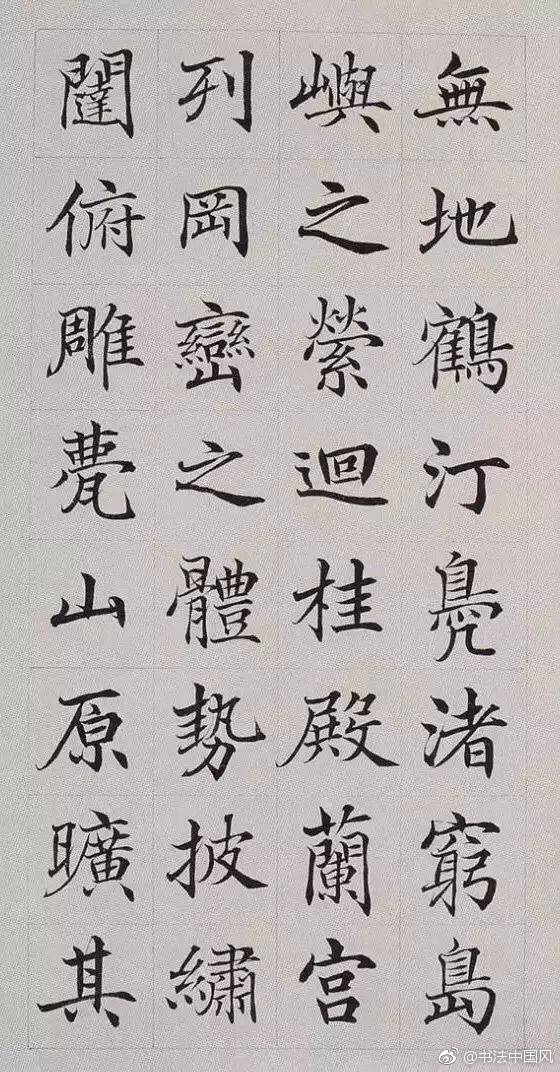 無地鶴汀鳧渚窮島
嶼之縈迴桂殿蘭宮
列岡巒之體勢披繡
闥俯雕甍山原曠其
@书法中国风